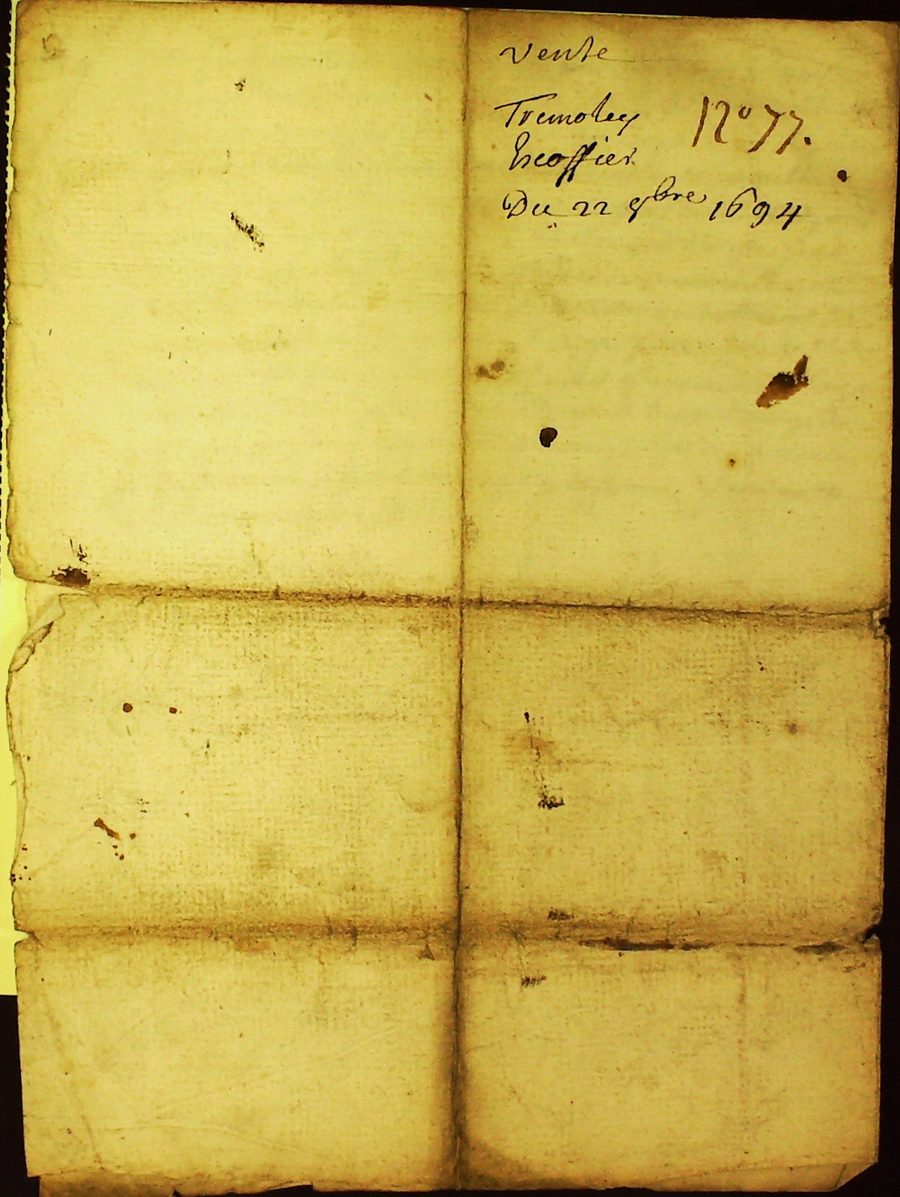 Vente
Tremoley N° 77.
Escoffier
Du 22 8bre 1694